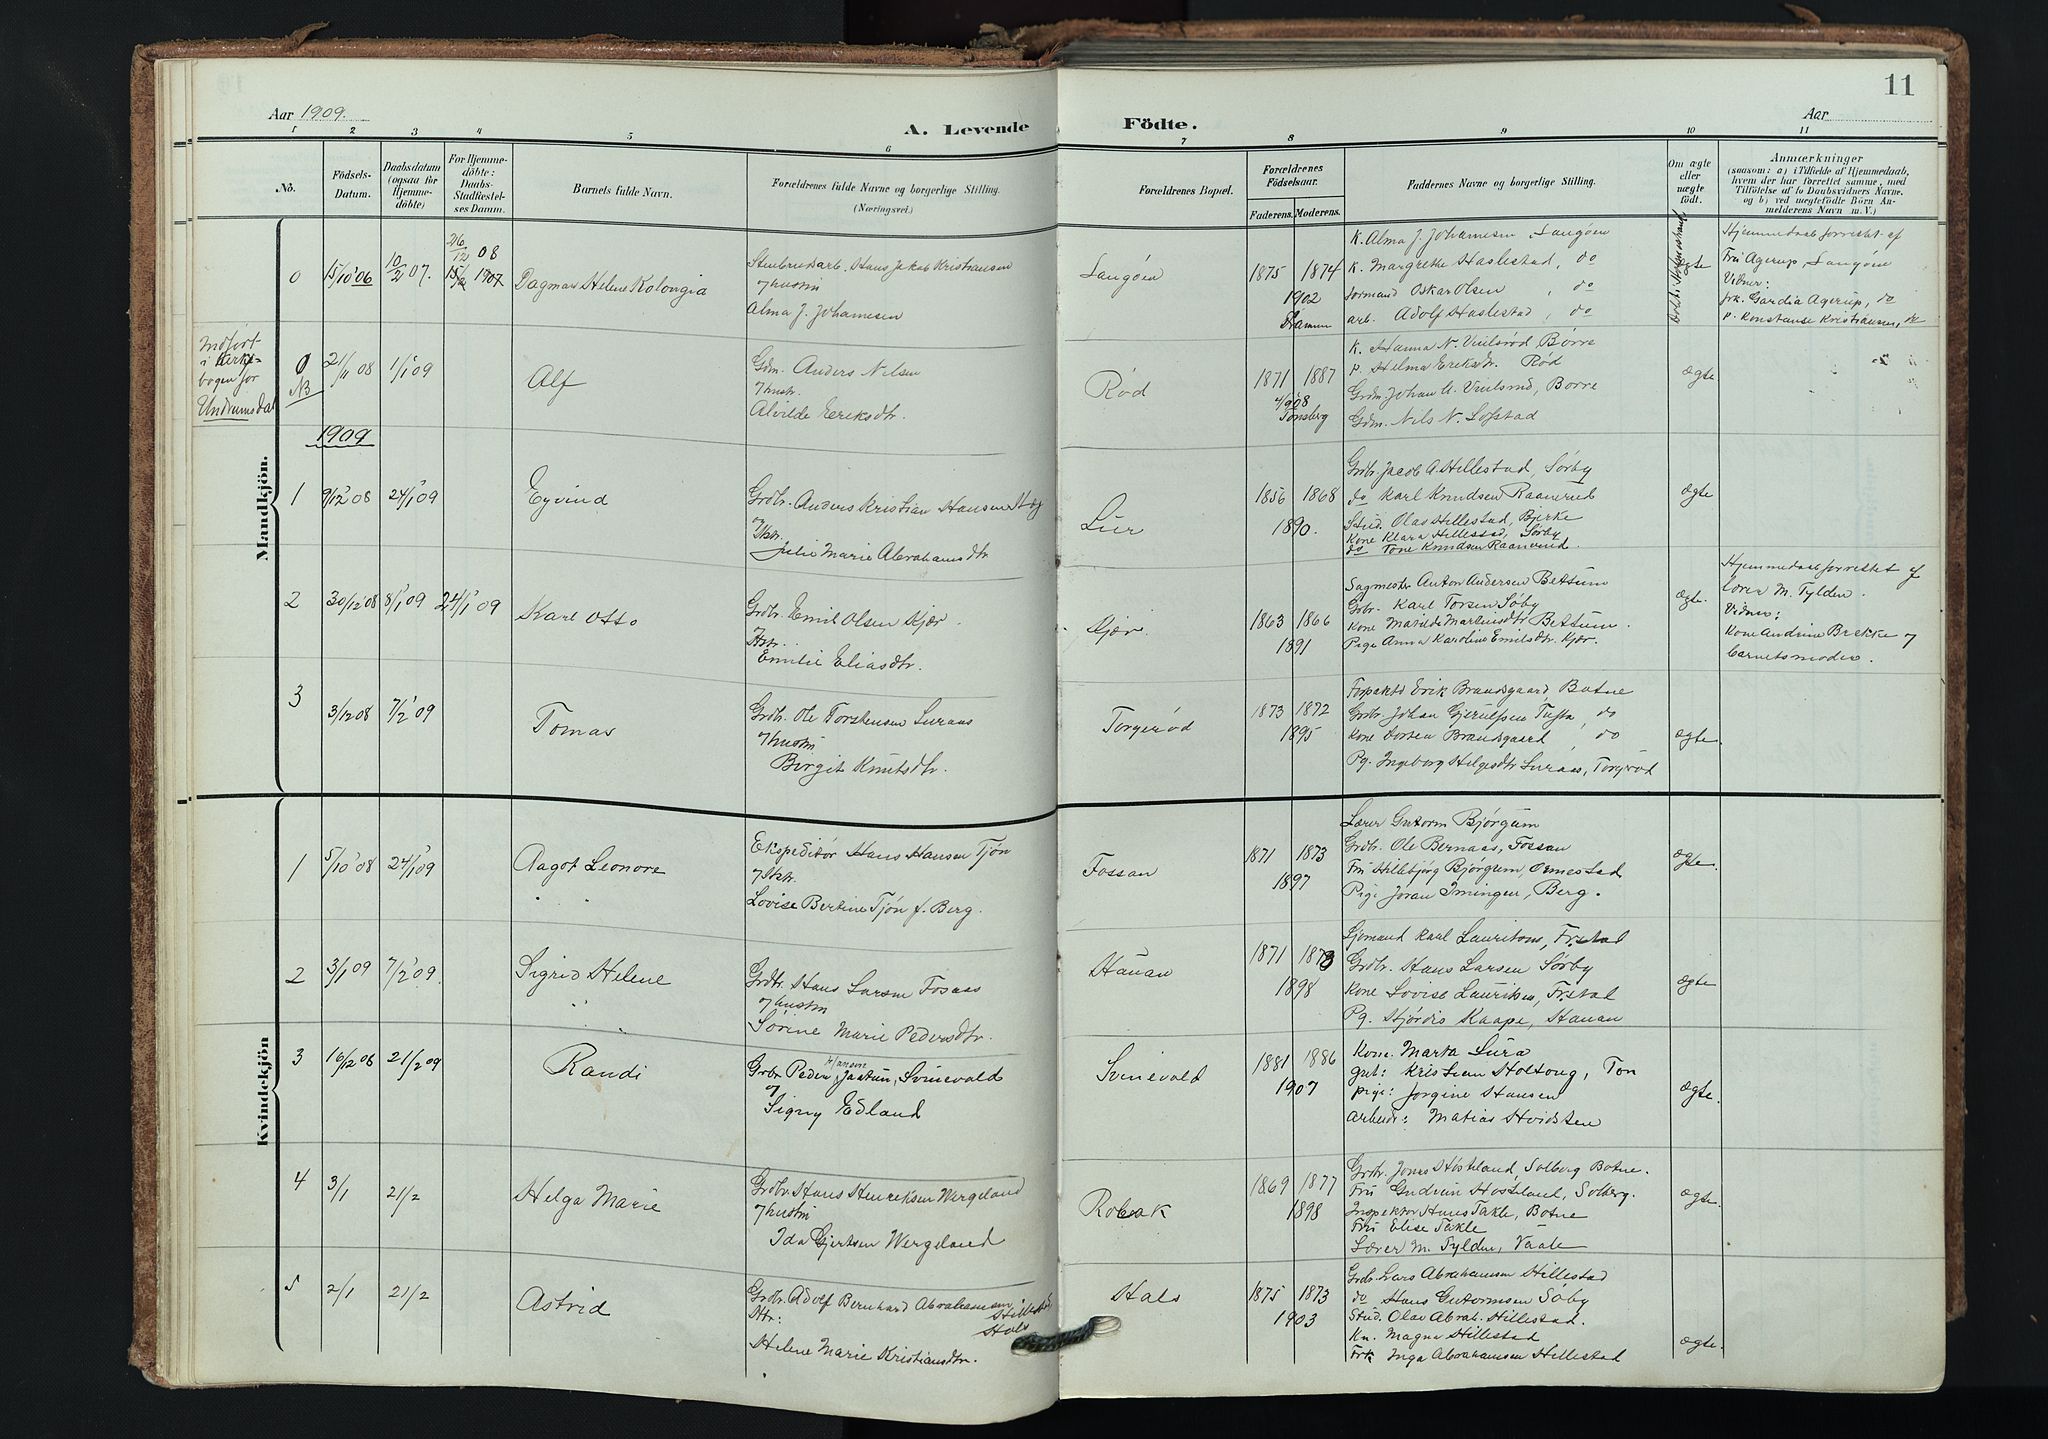 Aar 1909.
A. Levende
Födte.
11
Aar
1
2
3
4
5
6
7
8
9
10
11
No.
Födsels-
Datum.
Daabsdatum
(ogsaa for
Hjemme-
döbte)
For Hjemme-
döbte:
Daabs-
Stadfæstel-
ses Datum.
Barnets fulde Navn.
Forældrenes fulde Navne og borgerlige Stilling.
(Næringsvei.)
Forældrenes Bopæl.
Forældrenes
Födselsaar.
Faderens.
Moderens.
Faddernes Navne og borgerlige Stilling.
Om ægte
eller
uægte
födt.
Anmærkninger
(saasom: a) i Tilfælde af Hjemmedaab,
hvem der har forrettet samme, med
Tilföielse af to Daabsvidners Navne.
og b) ved uegtefödte Börn An-
melderens Navn m. V.)
0
15/10 06
10/2 07.
26/12 08
15/2 1907
Dagmar Helene Kolongia
Stenbrudsarb. Hans Jakob Kristiansen
og hustru
Alma J. Johannesen
Langöen
1875 1874
1902
Dramen
K. Alma J. Johannesen Langöen
K. Margrethe Haslestad, do
formand Oskar Olsen, do
arb. Adolf Haslestad, do
ægte
Hjemmedaab forrettet af
Fru Agerup, Langöen
Vidner:
frk. Gardia Agerup, do
p. Konstanse Kristiansen, do
Indført
i kirke-
bogen for
Undrumsdal
0
NB
21/11 08
1/1 09
Alf
Gdm. Anders Nilsen
og hustr.
Alvilde Eriksdtr.
Röd
1871 1887
4/9 08
Tønsberg
K. Hanna N. Viulsröd, Börre
p. Helma Eriksdtr. Röd
Grdm. Johan A. Viulsrød, Borre
Gdm. Nils N. Lofstad
ægte
1909
Mandkjön.
1
9/12 08
24/1 09
Eyvind
Grdbr. Anders Kristian Hansen
og
Hstr.
Julie Marie Abrahamsdtr
Lur
1856 1868
1890.
Grdbr. Jacob A. Hillestad, Sørby
do Karl Knudsen Raanerud
Stud. Olaf Hillestad, Bjerke
Kone Klara Hillestad, Sørby
do Tone Knudsen Raanerud.
ægte
2
30/12 08
8/1 09
24/1 09
Karl Otto
Grdbr. Emil Olsen Kjær.
og
Hstr.
Emilie Eliasdtr.
Kjær.
1863 1866
1891
Sagmester Anton Andersen Bettum
Grbr. Karl Torsen Søby
Kone Matilde Martinisdtr Bettum.
Pige Anna Karoline Emilsdtr. Kjær.
ægte.
Hjemmedaab forrettet af
lærer M. Tylden.
Vidner:
Kone Andrine Brekke og
barnets moder.
3
3/12 08
7/2 09
Tomas
Grdbr. Ole Torstensen Luraas
og hustru
Birgit Knutsdtr.
Torgerød
1873 1872
1895
Forpakter Erik Brandsgaard, Botne
Grdbr. Johan Gjerulfsen Tufta, do
Kone Dortea Brandsgaard, do
Pg. Ingeborg Helgesdtr Luraas, Torgerød
ægte.
Kvindekjön
1
5/10 08
24/1 09
Aagot Leonore
Ekspeditør Hans Hansen Tjön
og Hstr.
Lovise Bertine Tjön f. Berg.
Fossan
1871 1873
1897
Lærer Gutorm Bjørgum
Grdbr. Ole Bernaas, Fossan
Fru Hillebjørg Bjørgum, Ormestad
Pige Joran Iminger, Berg.
ægte.
2
3/1 09
7/2 09.
Sigrid Helene
Grdbr. Hans Larsen Fosaas
og hustru
Sörine Marie Pedersdtr.
Hauan
1871 1873
1898
Sjømand Karl Lauritsen, Frstal
Grdbr. Hans Larsen Sörby
Kone Lovise Lauritsen, Frstal
Pg. Hjördis Kaape, Hauan
ægte
3
16/12 08
21/2 09
Randi
Grbr. Peder Hansen Jaatun, Svinevald
og
Signy Edland
Svinevald
1881 1886
1907
Kone: Marta Lura
gut: Kristian Holtong, Ton
pige: Jorgine Hansen
arbeider: Matias Hvidsten
ægte.
4
3/1
21/2
Helga Marie
Grdbr. Hans Henriksen Wergeland
og hustru
Ida Gjertsen Wergeland
Robæk
1869 1877
1898
Grdbr. Jones Høstland, Solberg Botne.
Fru Gudrun Høstland, Solberg.
Inspektør Hans Takle, Botne
Fru Elise Takle
Lærer M. Tylden, Vaale
ægte.
5
2/1
21/2
Astrid
Grdbr. Adolf Bernhard Abrahamsen
Hillestad,
Hals
Htr:
Helene Marie Kristiansdtr.
Hals
1875 1873
1903
Grdb. Lars Abrahamsen Hillestad
do Hans Gutormsen Søby
Stud. Olav Abrah. Hillestad.
Kn. Magna Hillestad
Frk Inga Abrahamsen Hillestad
ægte.